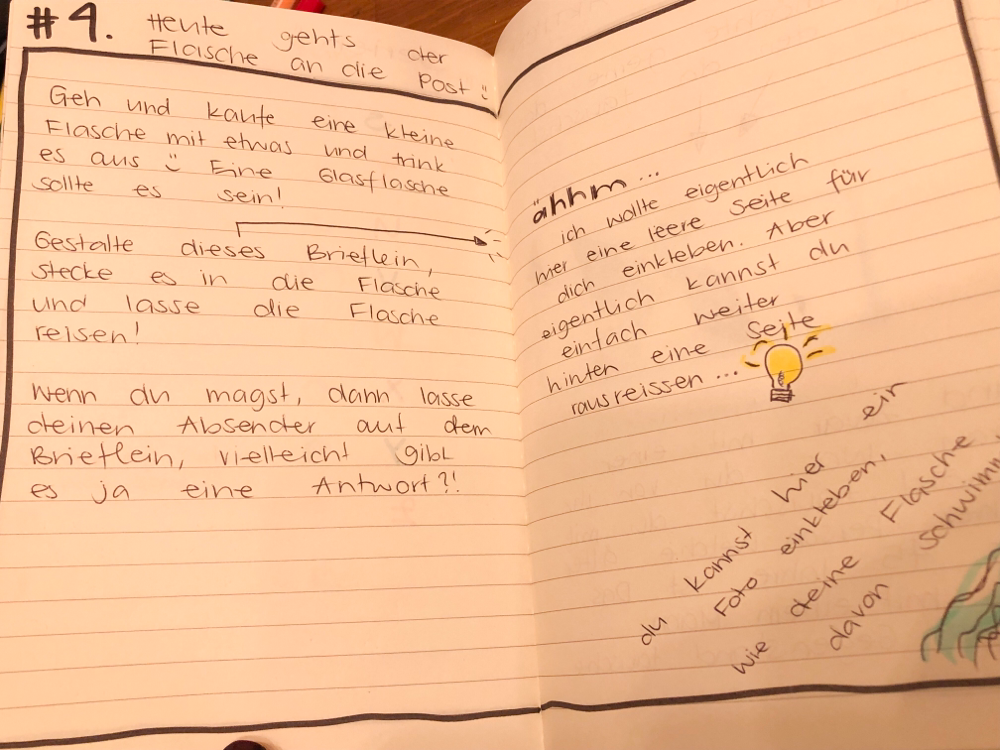 #4. Heute gehts der
Flasche an die Post :)
Geh und kaufe eine kleine
Flasche mit etwas und trink
es aus :) Eine Glasflasche
sollte es sein!
Gestalte dieses Brieflein,
stecke es in die Flasche
und lasse die Flasche
reisen!
Wenn du magst, dann lasse
deinen Absender auf dem
Brieflein, vielleicht gibt
es ja eine Antwort?!
ähhm...
ich wollte eigentlich
hier eine leere Seite für
dich einkleben. Aber
eigentlich kannst du
einfach weiter
hinten eine Seite
rausreissen...
du kannst hier ein
Foto einkleben,
wie deine Flasche
davon